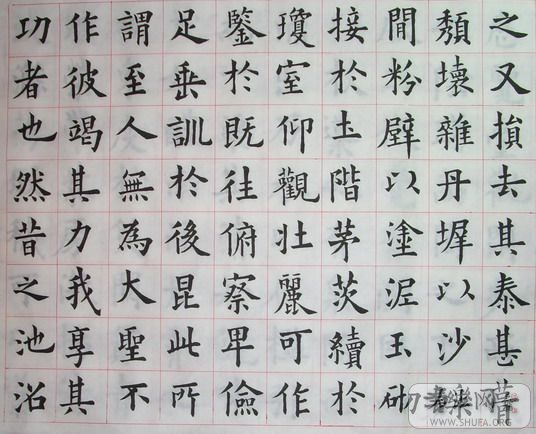 之又損去其泰甚葺
頹壞雜丹墀以沙
間粉壁以塗泥玉砌
接於土階茅茨續於
瓊室仰觀壯麗可作
鑒於既往俯察卑儉
足垂訓於後昆此所
謂至人無為大聖不
作彼竭其力我享其
功者也然昔之池沼
WWW.SHUFA.ORG